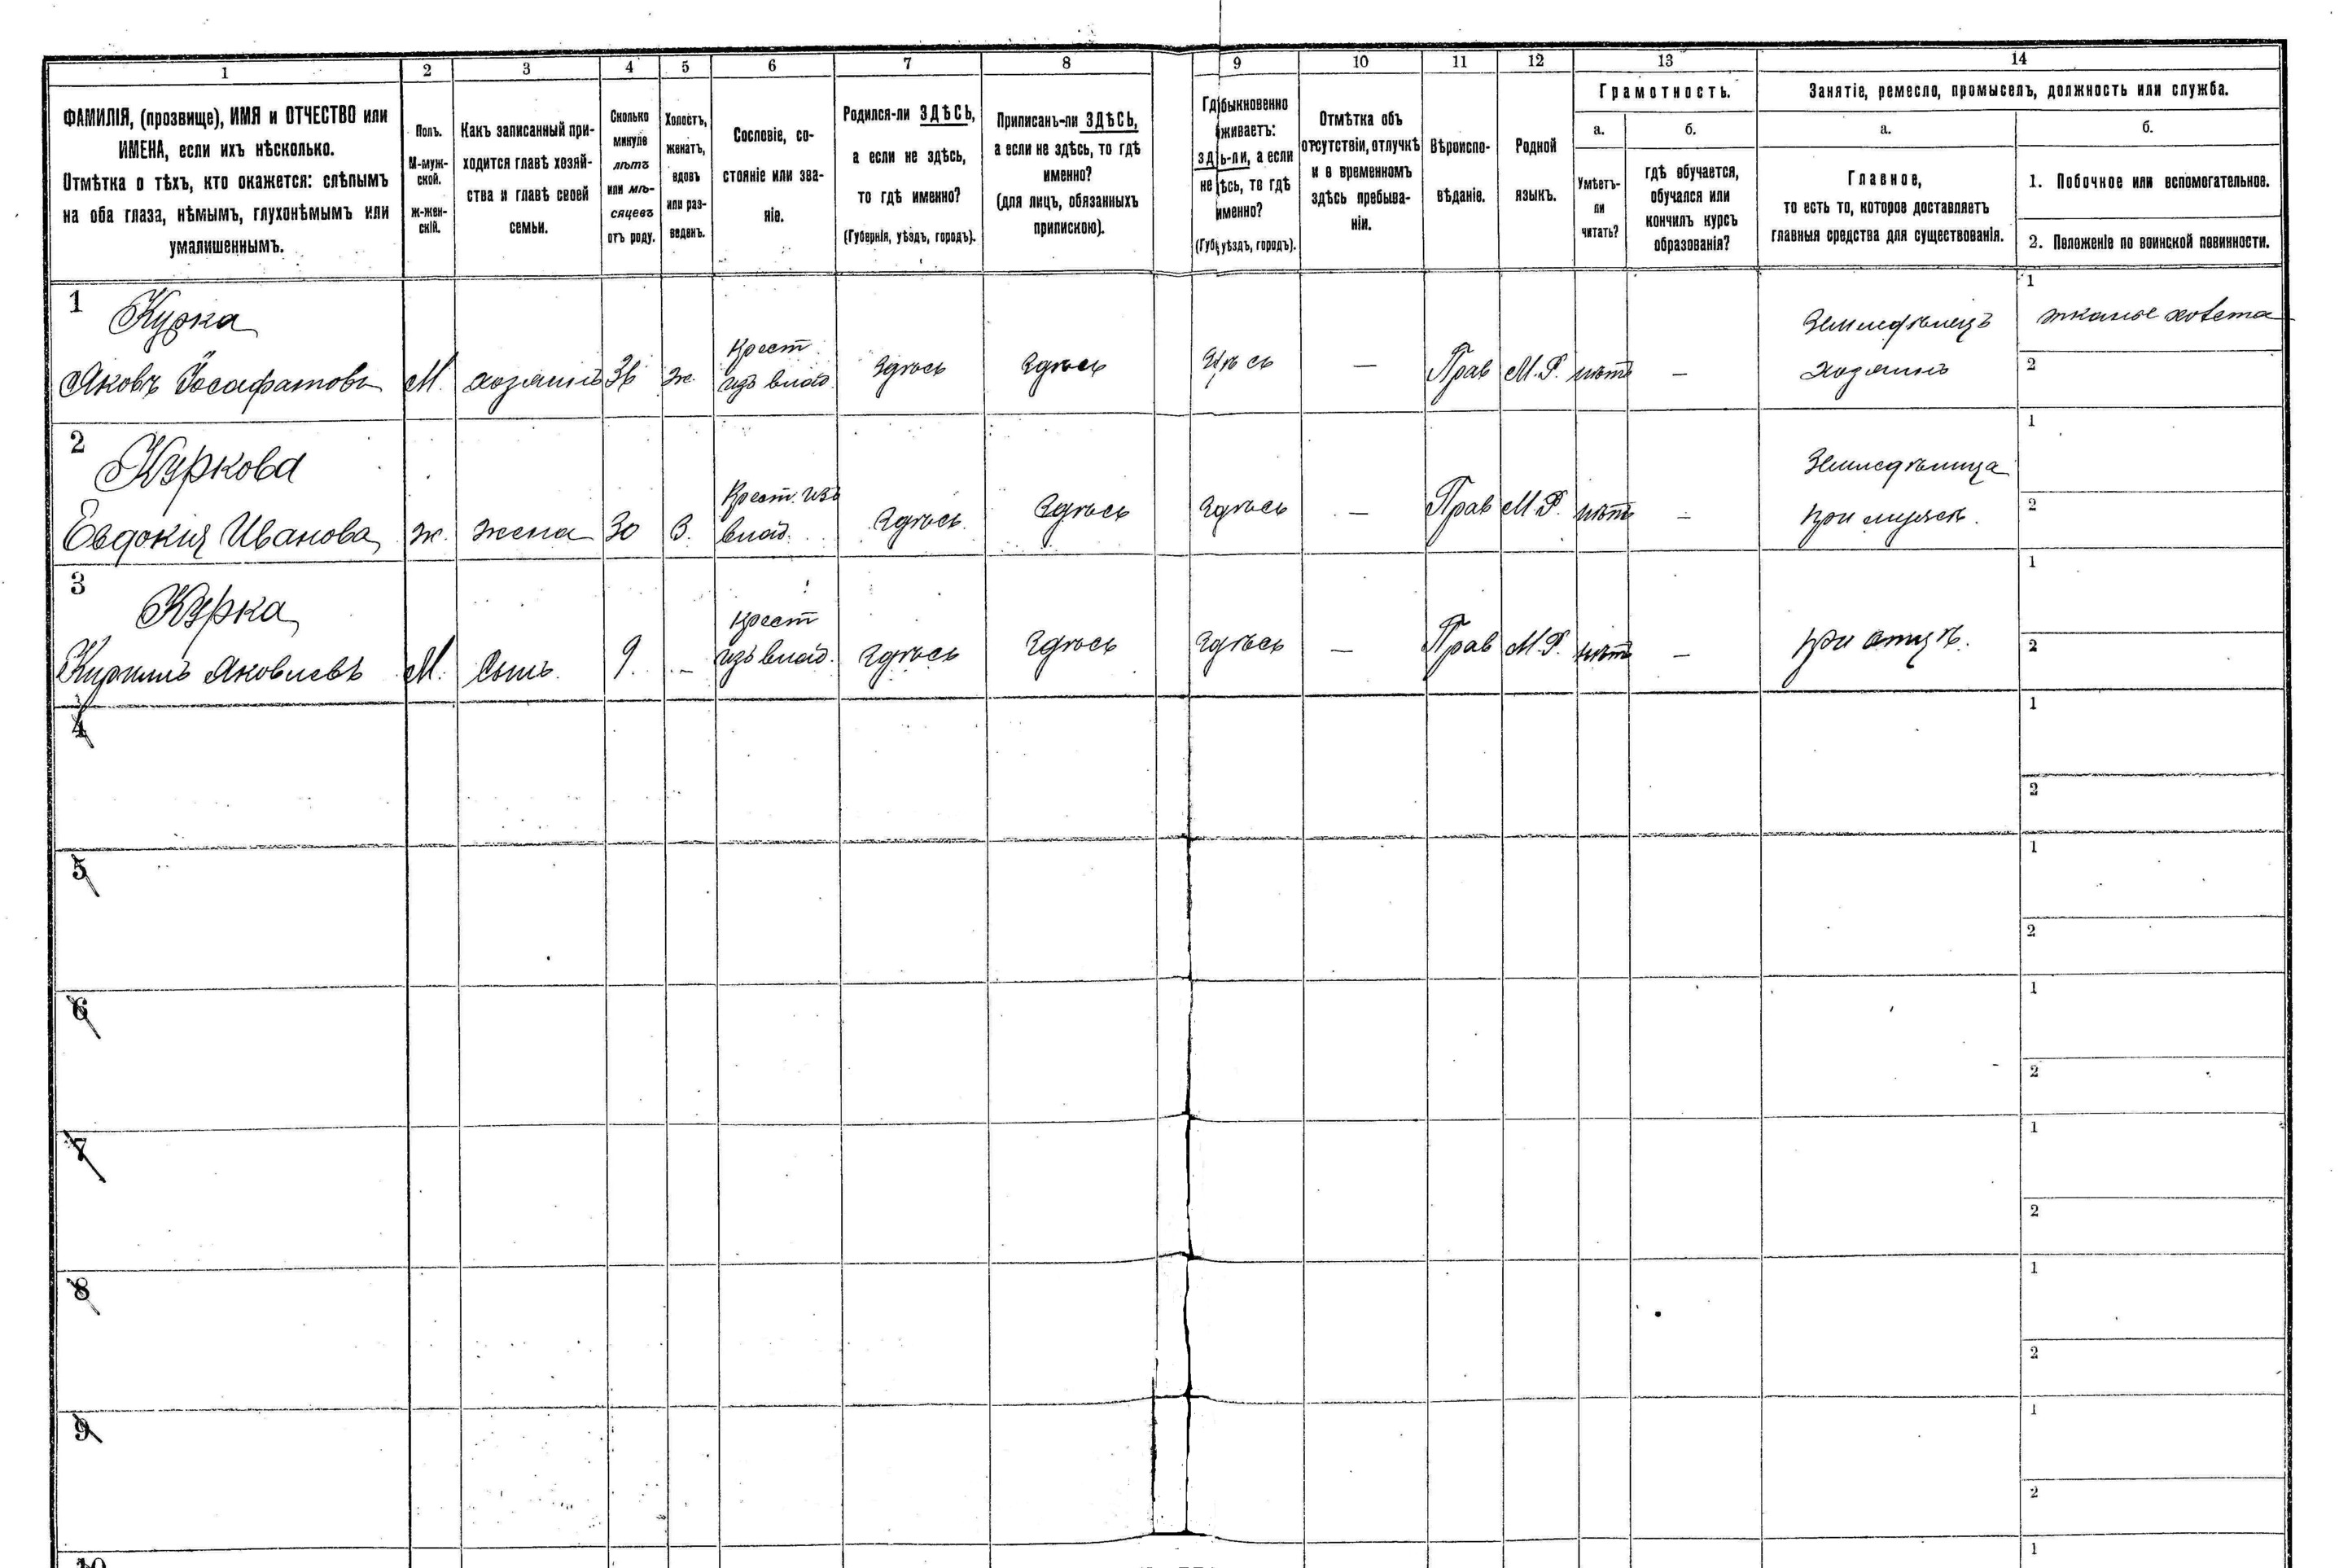 1 2 3 4 5 6 7 8 9 10 11 12 13 14
ФАМИЛІЯ, (прозвище), ИМЯ и ОТЧЕСТВО или
ИМЕНА, если ихъ нѣсколько.
Отмѣтка о тѣхъ, кто окажется: слѣпымъ
на оба глаза, нѣмымъ, глухонѣмымъ или
умалишеннымъ.
Полъ.
М-муж-
ской.
Ж-жен-
скій.
Какъ записанный при-
ходится главѣ хозяй-
ства и главѣ своей
семьи.
Сколько
минуло
лѣтъ
или мѣ-
сяцевъ
отъ роду.
Холостъ,
женатъ,
вдовъ
или раз-
веденъ.
Сословіе, со-
стояніе или зва-
ніе.
Родился-ли ЗДѢСЬ,
а если не здѣсь,
то гдѣ именно?
(Губернія, уѣздъ, городъ).
Приписанъ-ли ЗДѢСЬ,
а если не здѣсь, то гдѣ
именно?
(для лицъ, обязанныхъ
припискою).
Гд быкновенно
живаетъ:
зд ь-ли, а если
не ѣсь, то гдѣ
именно?
(Губ уѣздъ, городъ).
Отмѣтка объ
отсутствіи, отлучкѣ
и о временномъ
здѣсь пребыва-
ніи.
Вѣроиспо-
вѣданіе.
Родной
языкъ.
Грамотность.
а. б.
Умѣетъ-
ли
читать?
гдѣ обучается,
обучался или
кончилъ курсъ
образованія?
Занятіе, ремесло, промыселъ, должность или служба.
а. б.
Главное,
то есть то, которое доставляетъ
главныя средства для существованія.
1. Побочное или вспомогательное.
2. Положеніе по воинской повинности.
1 Курка
Яковъ Іосафатовъ М. хозяинъ 36 ж.
Крест
изъ влад.
Здѣсь Здѣсь Здѣсь — Прав М.Р. нѣтъ —
Земледѣлецъ
хозяинъ
1 тканье холста
2
2 Куркова
Евдокія Иванова ж. жена 30 З.
Крест. изъ
влад.
Здѣсь Здѣсь Здѣсь — Прав М.Р. нѣтъ —
Земледѣлица
при мужѣ.
1
2
3 Курка
Кирилъ Яковлевъ М. Сынъ. 9. —
Крест
изъ влад.
Здѣсь Здѣсь Здѣсь — Прав М.Р. нѣтъ —
при отцѣ.
1
2
4
1
2
5
1
2
6
1
2
7
1
2
8
1
2
9
1
2
10
1